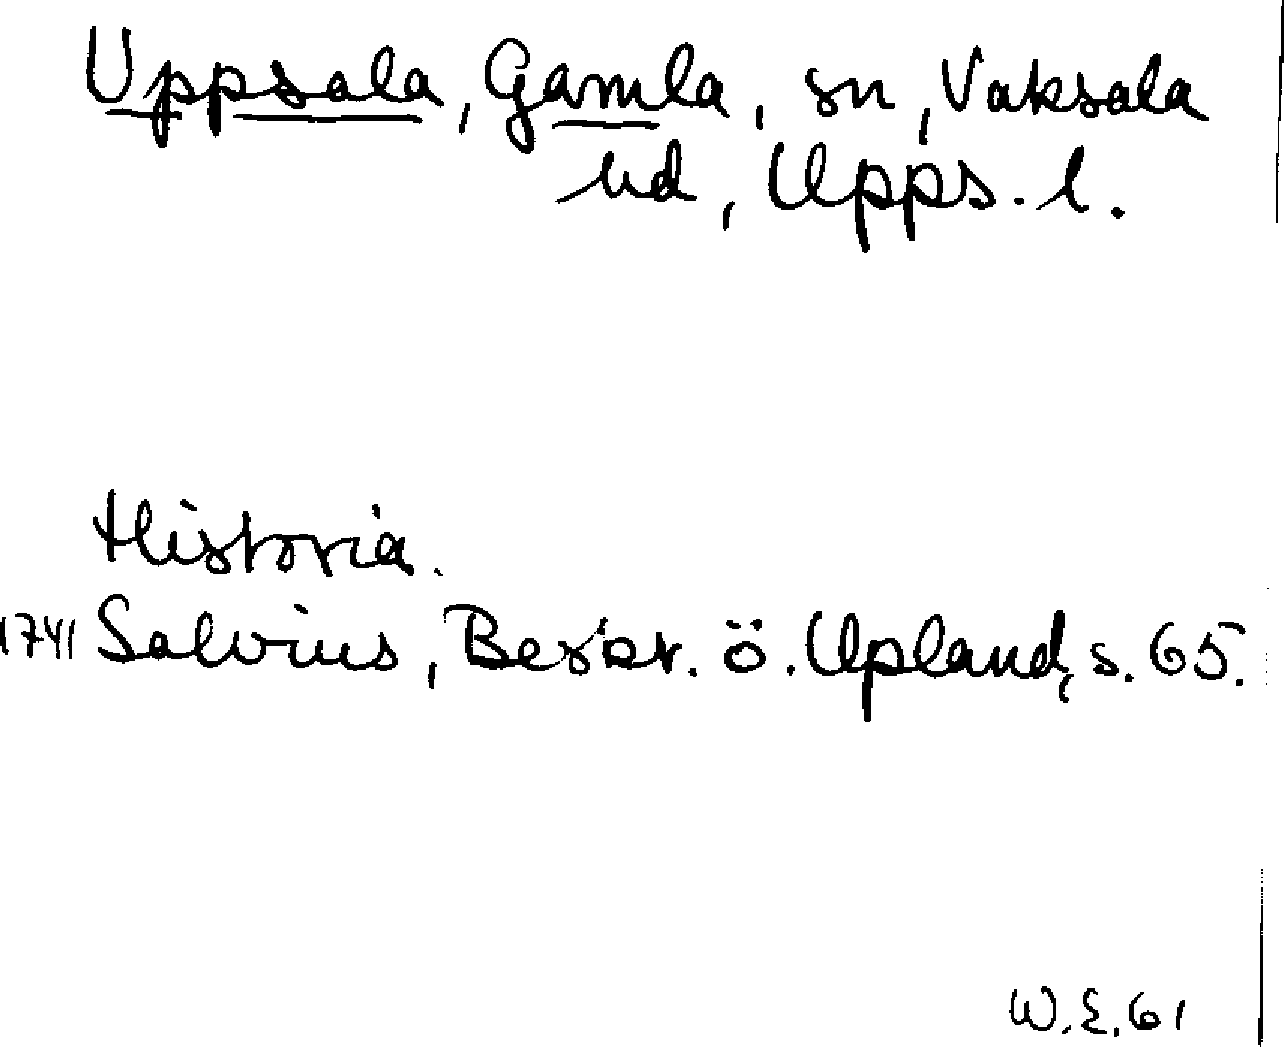 Uppsala, Gamla, sn, Vaksala
hd, Upps. l.
Historia.
1741 Salvius, Beskr. ö. Upland, s. 65.
W.E.61